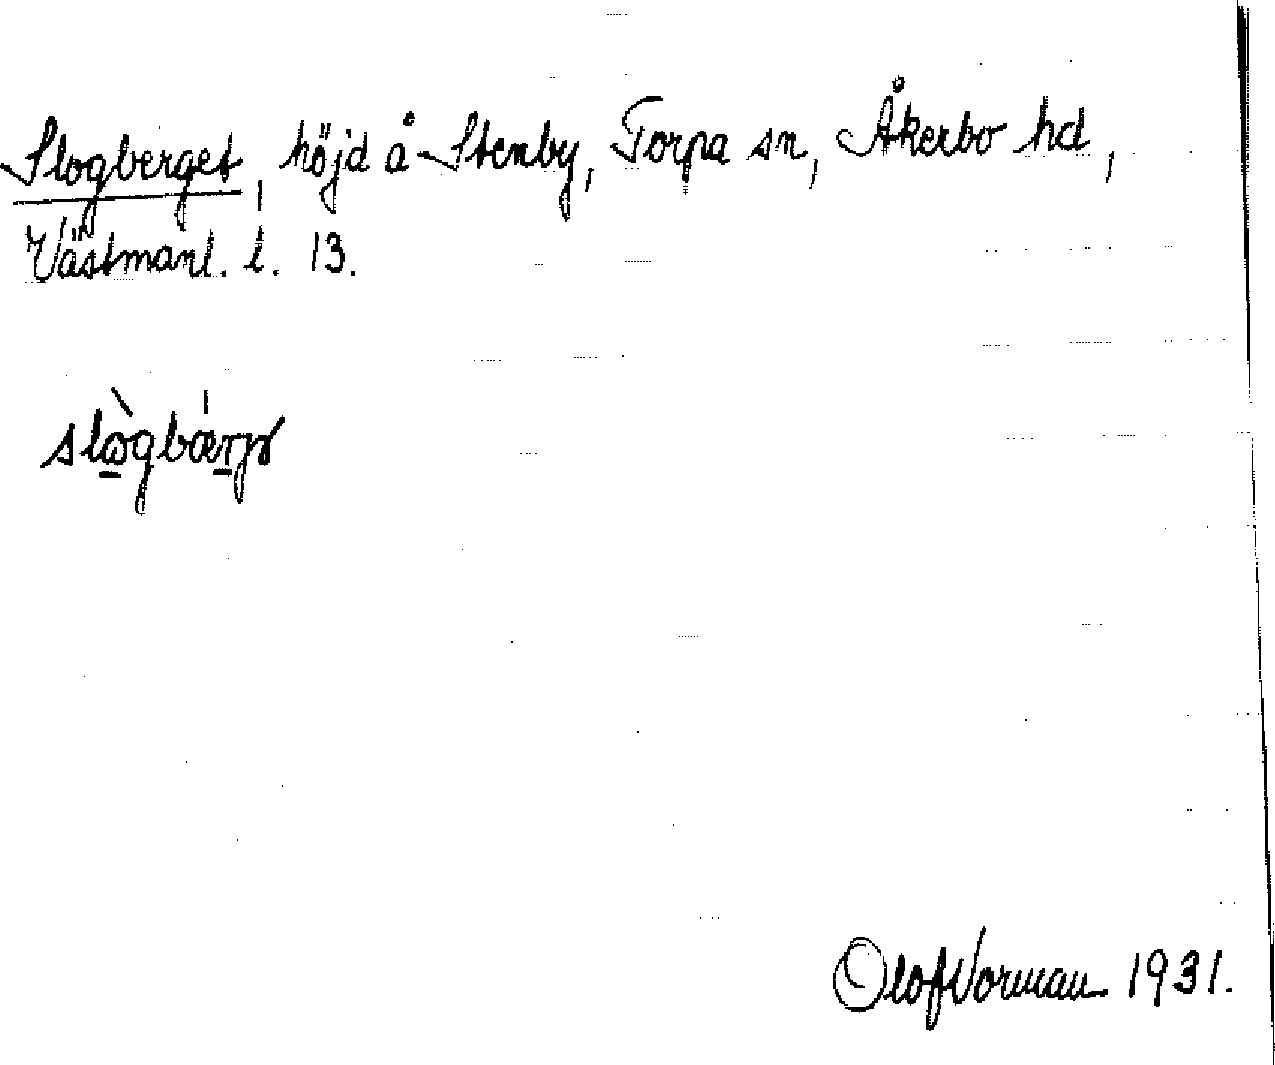 Slogberget, höjd å Stenby, Torpa sn, Åkerbo hd,
Västmanl. l. 13.
Olof Norman 1931.